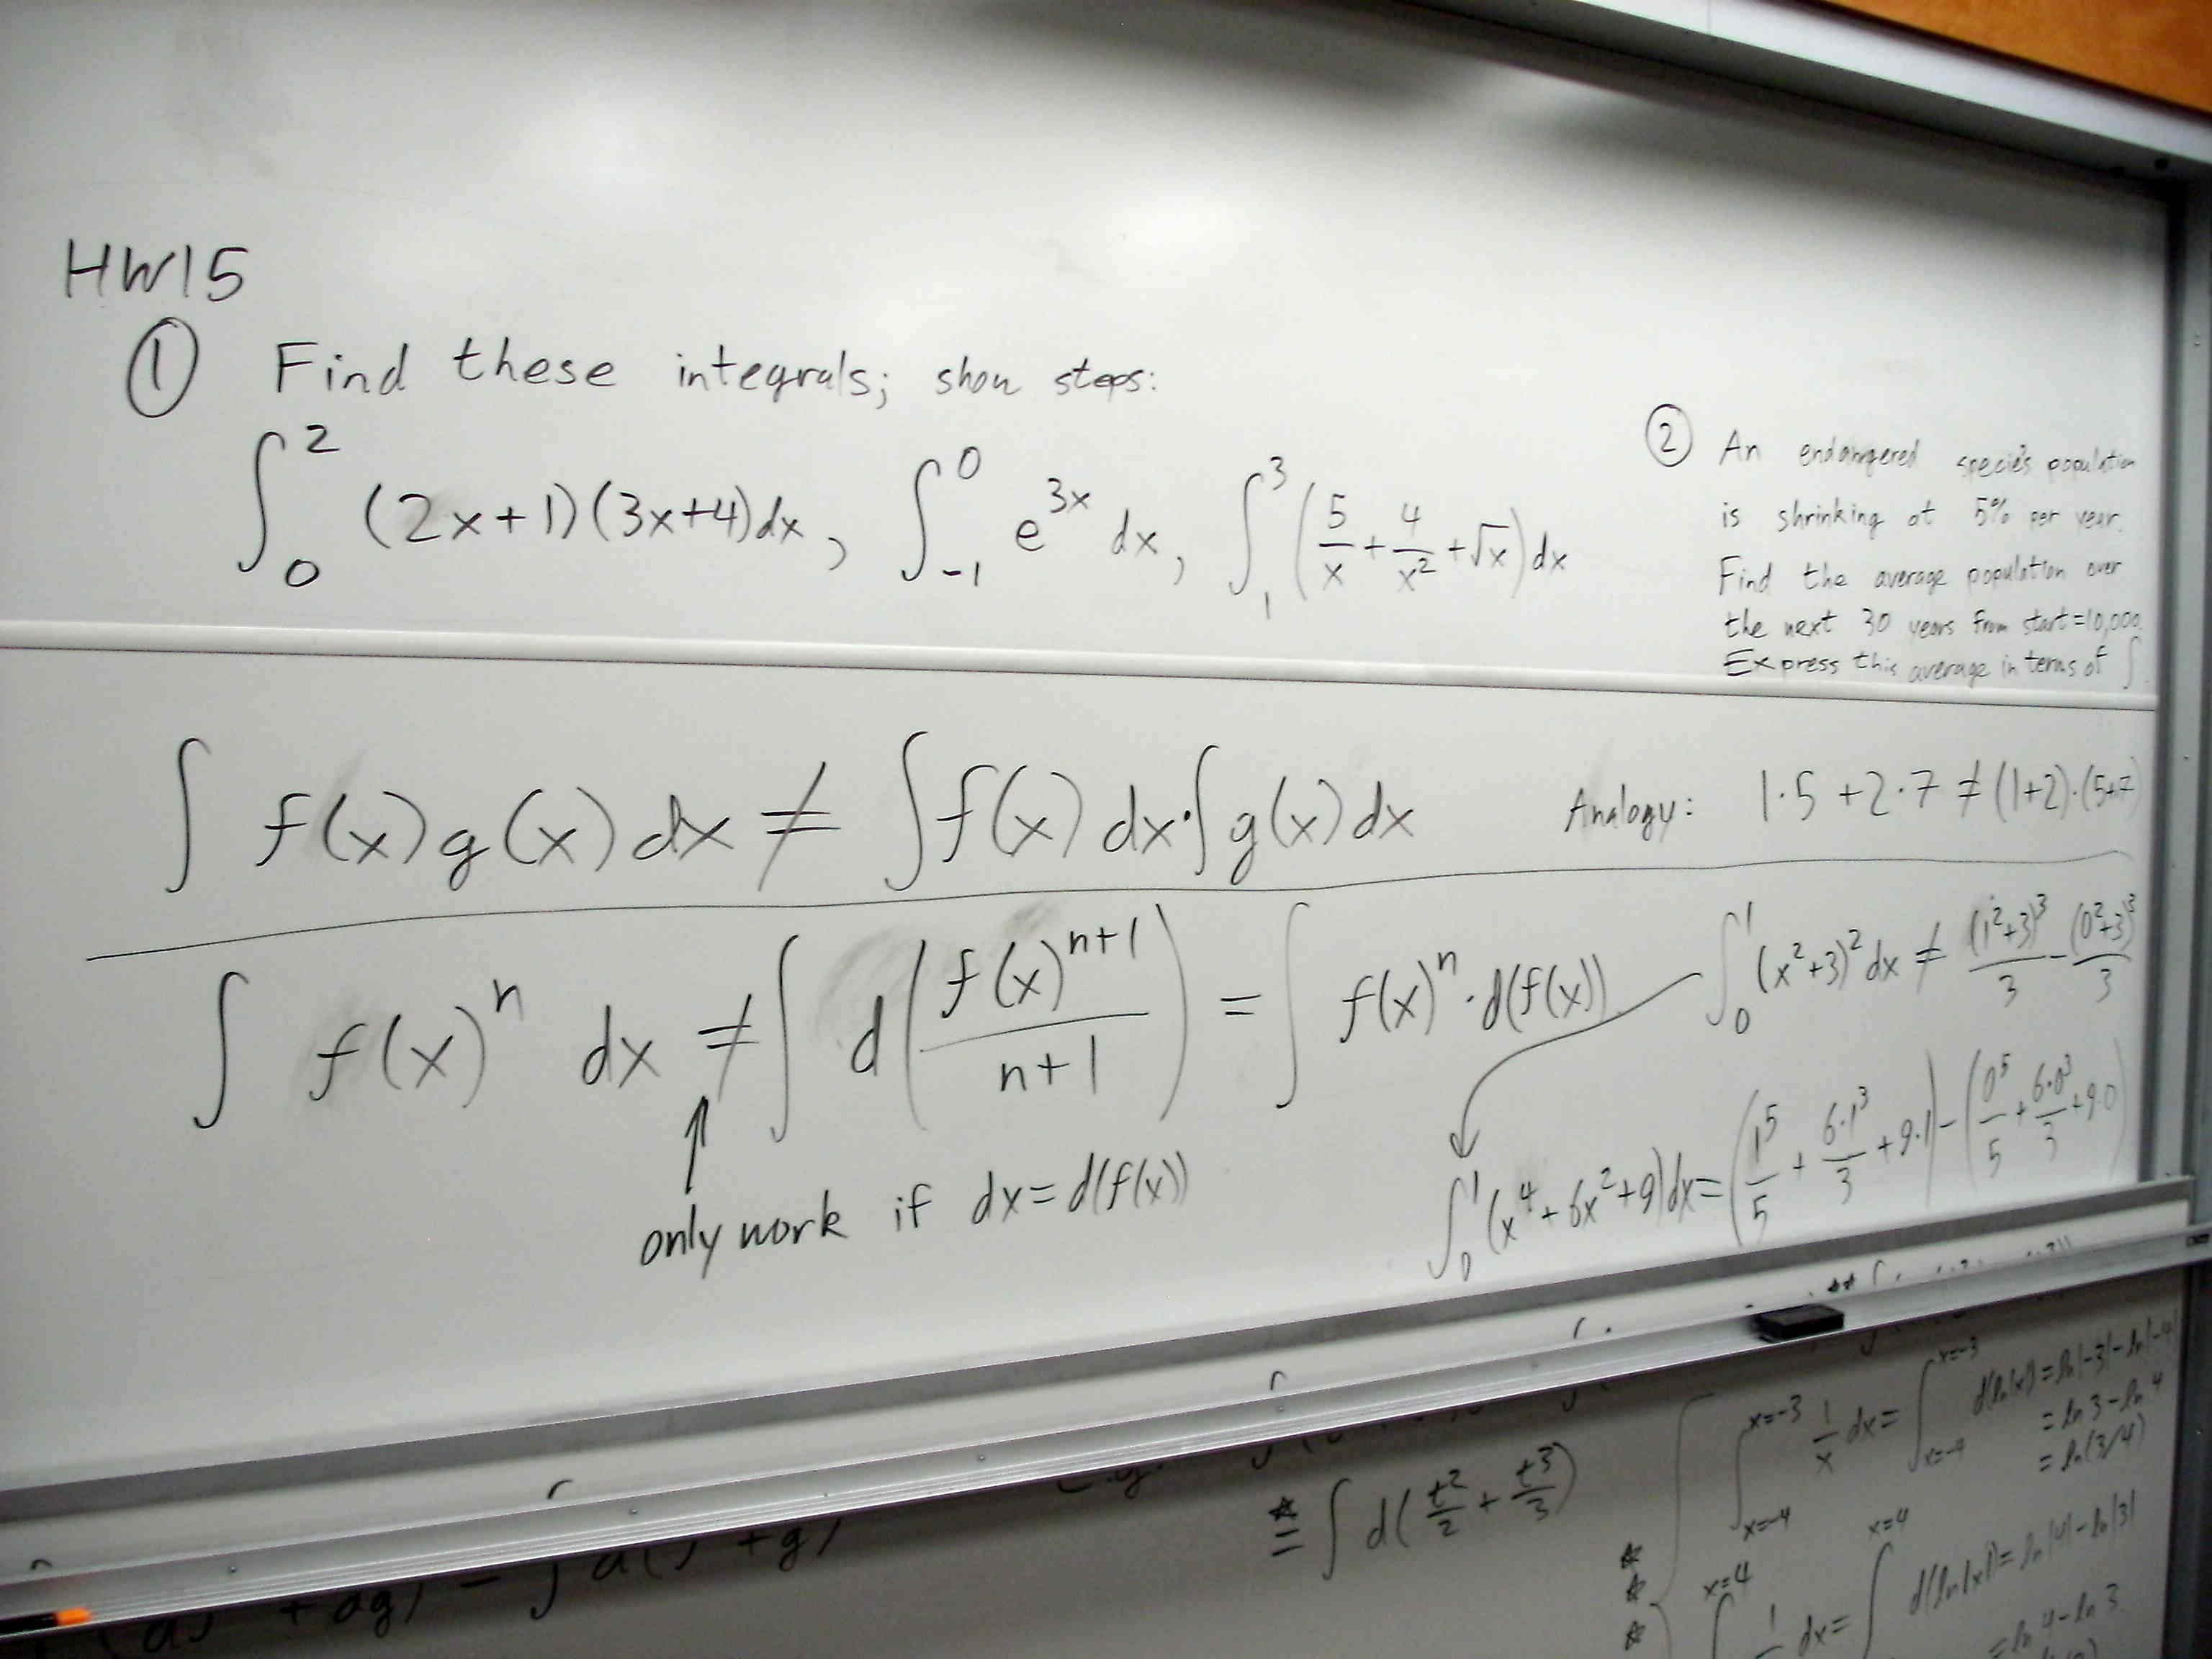 HW15
① Find these integrals; show steps:
∫₀² (2x+1)(3x+4)dx, ∫₋₁⁰ e^{3x} dx, ∫₁³ (5/x + 4/x² + √x) dx
② An endangered species population
is shrinking at 5% per year.
Find the average population over
the next 30 years from start=10,000.
Express this average in terms of ∫.
∫ f(x)g(x)dx ≠ ∫f(x)dx·∫g(x)dx
Analogy: 1·5+2·7 ≠ (1+2)·(5+7)
∫ f(x)ⁿ dx ≠ ∫ d(f(x)^{n+1}/(n+1)) = ∫ f(x)ⁿ·d(f(x))
↑
only work if dx=d(f(x))
∫₀¹ (x²+3)² dx ≠ (1²+3)³/3 - (0²+3)³/3
∫₀¹ (x⁴+6x²+9)dx = (1⁵/5 + 6·1³/3 + 9·1) - (0⁵/5 + 6·0³/3 + 9·0)
☆= ∫ d(t²/2 + t³/3)
∫_{x=-4}^{x=-3} 1/x dx = ∫_{x=-4}^{x=-3} d(ln|x|) = ln|-3| - ln|-4|
= ln 3 - ln 4
= ln(3/4)
☆
☆
☆
x=4 x=4
dx = ∫ d(ln|x|) = ln|4| - ln|3|
= ln 4 - ln 3